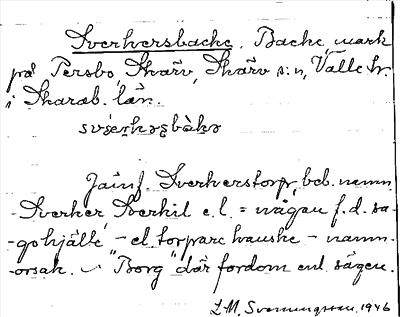 Sverkersbacke, Backe, mark
på Persbo, Skärv, Skärv s:n, Valle hr.
i Skarab. län.
Jämf. Sverkerstorp, beb. namn
Sverker Sverkil e.l. = någon f.d. sa-
gohjälte - el torpare kanske - namn-
orsak. "Borg" där fordom enl. sägen.
L.M. Svenungsson. 1946